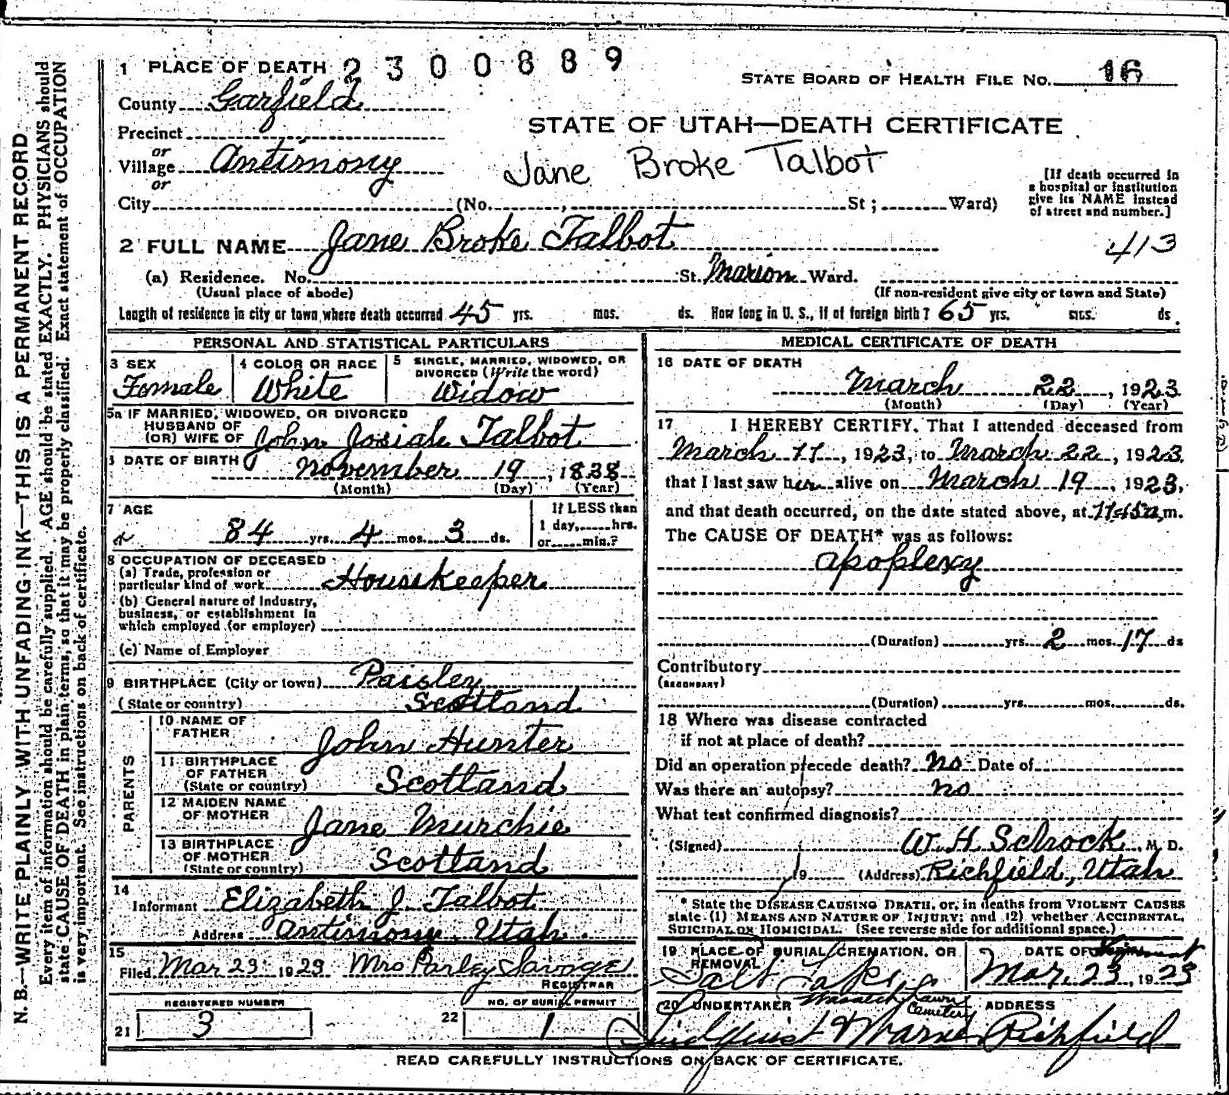 2300889
1 PLACE OF DEATH
STATE BOARD OF HEALTH FILE NO. 16
County Garfield
STATE OF UTAH—DEATH CERTIFICATE
Precinct
or
Village Antimony
Jane Broke Talbot
or
City (No. , St ; Ward)
[If death occurred in a hospital or institution give its NAME instead of street and number.]
2 FULL NAME Jane Broke Talbot
413
(a) Residence. No. St. Marion Ward.
(Usual place of abode) (If non-resident give city or town and State)
Length of residence in city or town where death occurred 45 yrs. mos. ds. How long in U. S., if of foreign birth? 65 yrs. mos. ds.
PERSONAL AND STATISTICAL PARTICULARS
3 SEX Female
4 COLOR OR RACE White
5 SINGLE, MARRIED, WIDOWED, OR DIVORCED (Write the word) Widow
5a IF MARRIED, WIDOWED, OR DIVORCED
HUSBAND OF
(OR) WIFE OF John Josiah Talbot
DATE OF BIRTH November 19, 1838
(Month) (Day) (Year)
7 AGE
84 yrs. 4 mos. 3 ds.
If LESS than 1 day, hrs. or min.?
8 OCCUPATION OF DECEASED
(a) Trade, profession or particular kind of work Housekeeper
(b) General nature of Industry, business, or establishment in which employed (or employer)
(c) Name of Employer
9 BIRTHPLACE (City or town) Paisley
(State or country) Scotland
PARENTS
10 NAME OF FATHER John Hunter
11 BIRTHPLACE OF FATHER (State or country) Scotland
12 MAIDEN NAME OF MOTHER Jane Murchie
13 BIRTHPLACE OF MOTHER (State or country) Scotland
14
Informant Elizabeth J. Talbot
Address Antimony, Utah
15
Filed Mar 23, 1923 Mrs Parley Savage
REGISTRAR
REGISTERED NUMBER NO. OF BURIAL PERMIT
21 3 22 1
MEDICAL CERTIFICATE OF DEATH
16 DATE OF DEATH
March 22, 1923
(Month) (Day) (Year)
17 I HEREBY CERTIFY, That I attended deceased from
March 11, 1923, to March 22, 1923,
that I last saw her alive on March 19, 1923,
and that death occurred, on the date stated above, at 11:45 a,m.
The CAUSE OF DEATH* was as follows:
apoplexy
(Duration) yrs. 2 mos. 17 ds
Contributory
(SECONDARY)
(Duration) yrs. mos. ds.
18 Where was disease contracted
if not at place of death?
Did an operation precede death? no Date of
Was there an autopsy? no
What test confirmed diagnosis?
(Signed) W. H. Schrock, M. D.
, 19 (Address) Richfield, Utah
* State the DISEASE CAUSING DEATH, or, in deaths from VIOLENT CAUSES
state (1) MEANS AND NATURE OF INJURY; and (2) whether ACCIDENTAL,
SUICIDAL OR HOMICIDAL. (See reverse side for additional space.)
19 PLACE OF BURIAL, CREMATION, OR REMOVAL
Salt Lake
Wasatch Lawn Cemetery
DATE OF
Mar. 23, 1923
20 UNDERTAKER ADDRESS
Richfield
READ CAREFULLY INSTRUCTIONS ON BACK OF CERTIFICATE.
N. B.—WRITE PLAINLY WITH UNFADING INK—THIS IS A PERMANENT RECORD
Every item of information should be carefully supplied. AGE should be stated EXACTLY. PHYSICIANS should
state CAUSE OF DEATH in plain terms, so that it may be properly classified. Exact statement of OCCUPATION
is very important. See instructions on back of certificate.